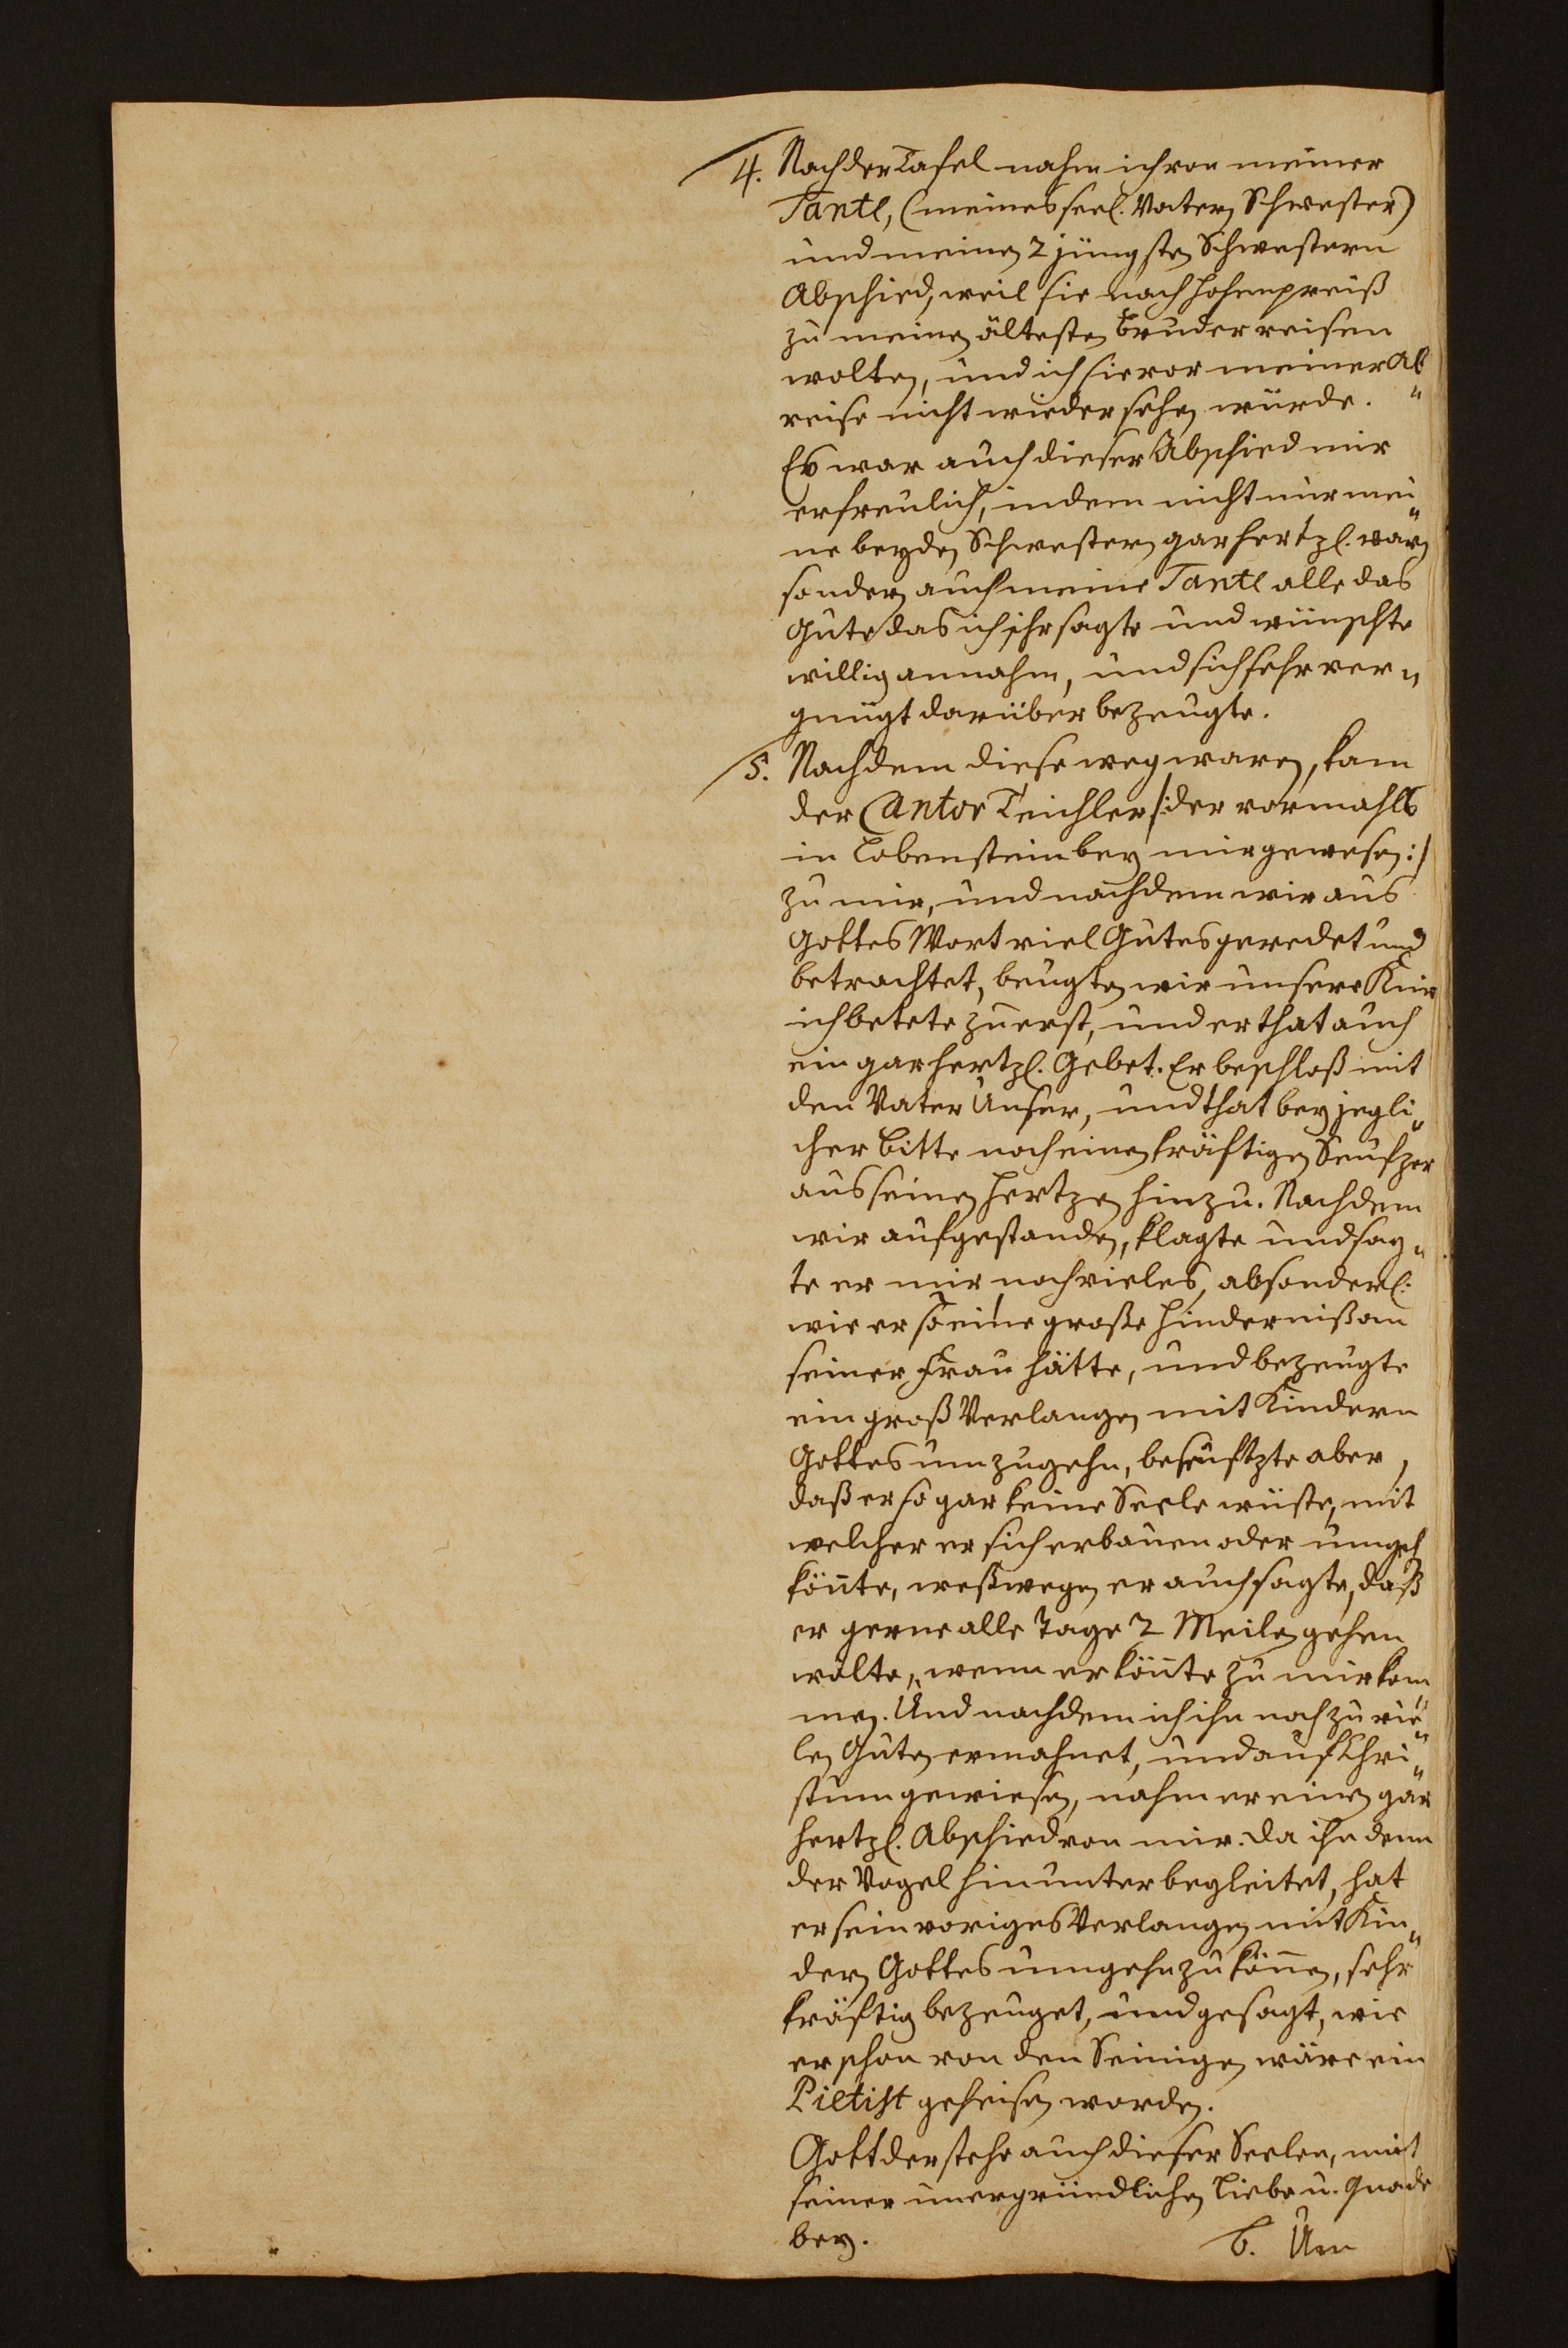 4. Nach der Tafel nahm ich von meiner
Tante, (meines seel. Vaters Schwester)
und meinen 2 jüngsten Schwestern
Abschied, weil sie nach Hohenpreiß
zu meinen ältesten Bruder reisen
wolten, und ich sie vor meiner Ab„
reise nicht wieder sehen würde.
Es war auch dieser Abschied mir
erfreulich, indem nicht nur mei„
ne beyden Schwestern gar hertzl. waren
sondern auch meine Tante alle das
Gute das ich ihr sagte und wünschte
willig annahm, und sich sehr ver„
gnügt darüber bezeugte.
5. Nachdem diese weg waren, kam
der Cantor Teichler /: der vormahls
in Lobenstein bey mir gewesen :/
zu mir, und nachdem wir aus
Gottes Wort viel Gutes geredet und
betrachtet, beugten wir unsere Knie
ich betete zuerst, und er that auch
ein gar hertzl. Gebet. Er beschloß mit
den Vater Unser, und that bey jegli„
cher Bitte noch einen kräftigen Seufzer
aus seinen Hertzen hinzu. Nachdem
wir aufgestanden, klagte und sag„
te er mir noch vieles, absonderl:
wie er so eine große Hinderniß an
seiner Frau hätte, und bezeugte
ein groß Verlangen mit Kindern
Gottes umzugehn, beseuftzte aber,
daß er so gar keine Seele wüste, mit
welcher er sich erbauen oder umgeh
kön̄te, weßwegen er auch sagte, daß
er gerne alle Tage 2 Meilen gehen
wolte, wenn er kön̄te zu mir kom„
men. Und nachdem ich ihn noch zu vie„
len Guten ermahnet, und auf Chri„
stum gewiesen, nahm er einen gar
hertzl. Abschied von mir. Da ihn denn
der Vogel hinunter begleitet, hat
er sein voriges Verlangen mit Kin„
dern Gottes umgehn zu kön̄en, sehr
kräftig bezeuget, und gesagt, wie
er schon von den Seinigen wäre ein
Pietist geheisen worden.
Gott der stehe auch dieser Seelen, mit
seiner unergründlichen Liebe u. Gnade
bey.
6. Um